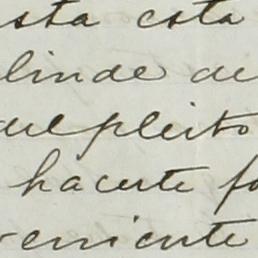 sta esta
linde de
del pleito
hacerte fo
veniente